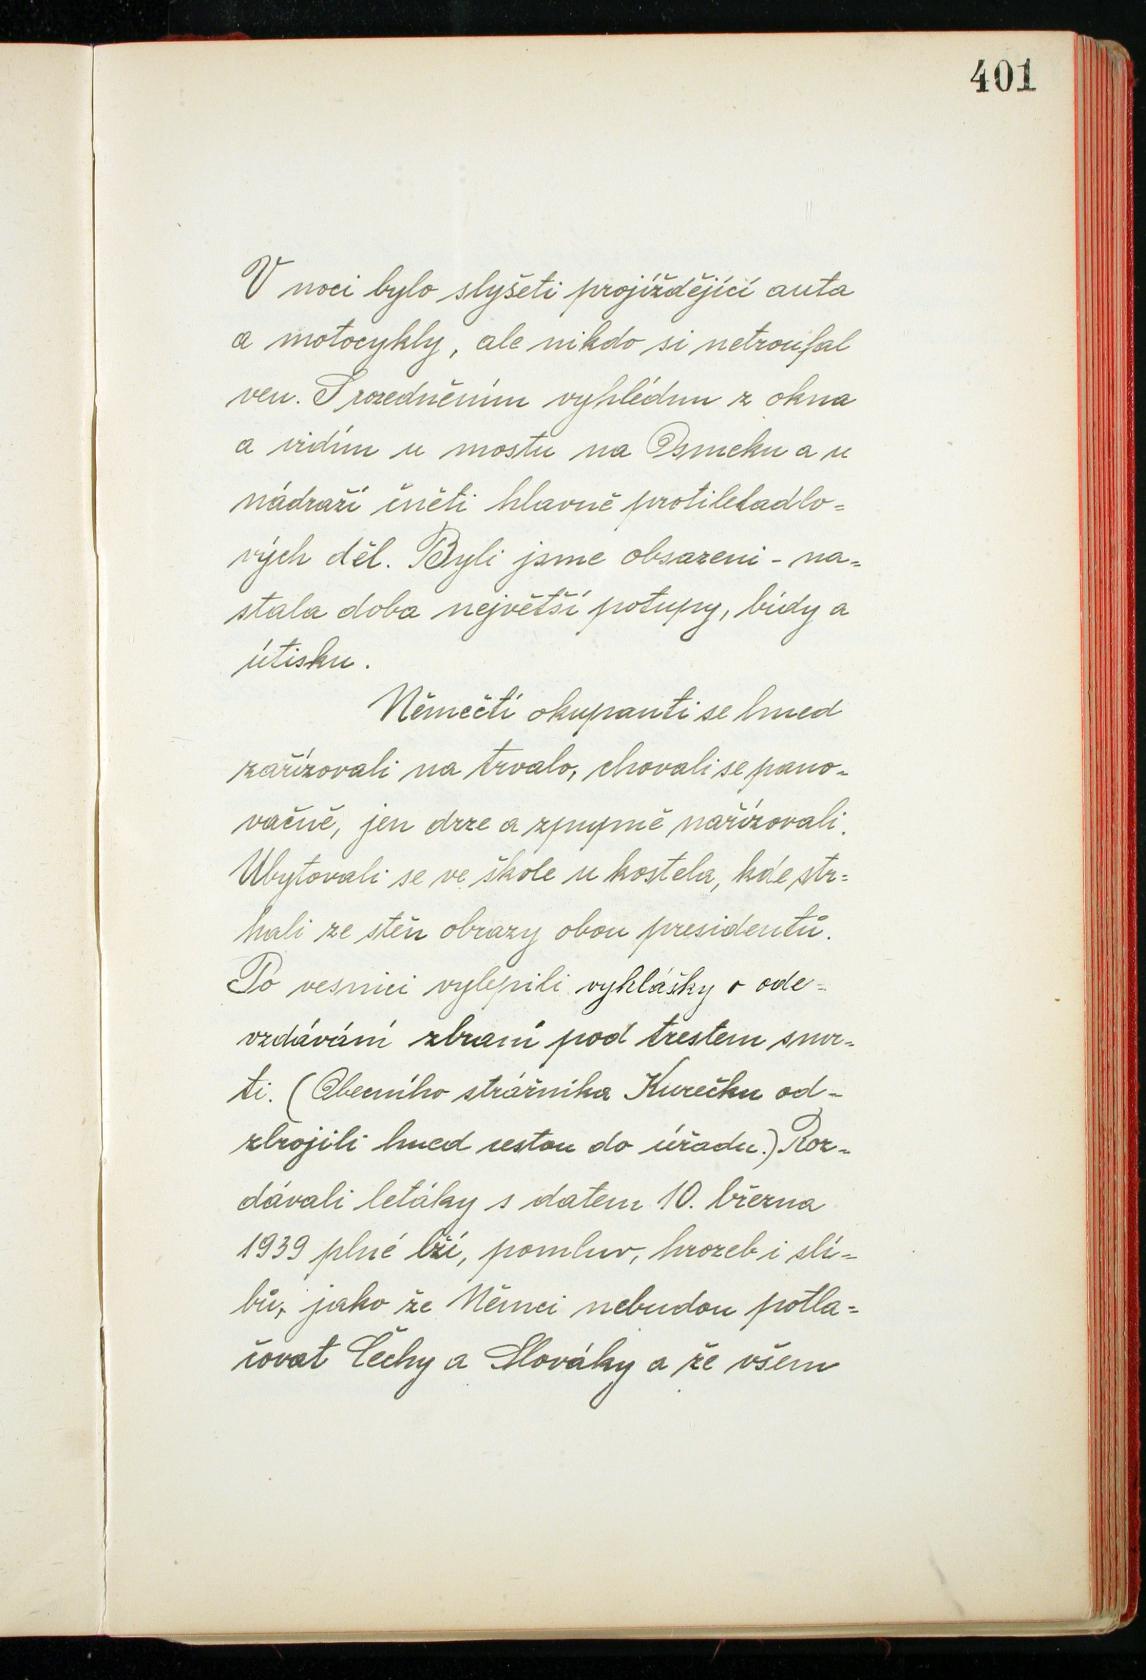 401
V noci bylo slyšeti projíždějící auta
a motocykly, ale nikdo si netroufal
ven. S rozedněním vyhlédnu z okna
a vidím u mostu na Osmeku a u
nádraží čněti hlavně protiletadlo=
vých děl. Byli jsme obsazeni - na=
stala doba největší potupy, bídy a
útisku.
Němečtí okupanti se hned
zařizovali na trvalo, chovali se pano=
vačně, jen drze a zpupně nařizovali.
Ubytovali se ve škole u kostela, kde str=
hali ze stěn obrazy obou presidentů.
Po vesnici vylepili vyhlášky o ode=
vzdávání zbraní pod trestem smr=
ti. (Obecního strážníka Kurečku od=
zbrojili hned cestou do úřadu.) Roz=
dávali letáky s datem 10. března
1939 plné lží, pomluv, hrozeb i sli=
bů, jako že Němci nebudou potla=
čovat Čechy a Slováky a že všem